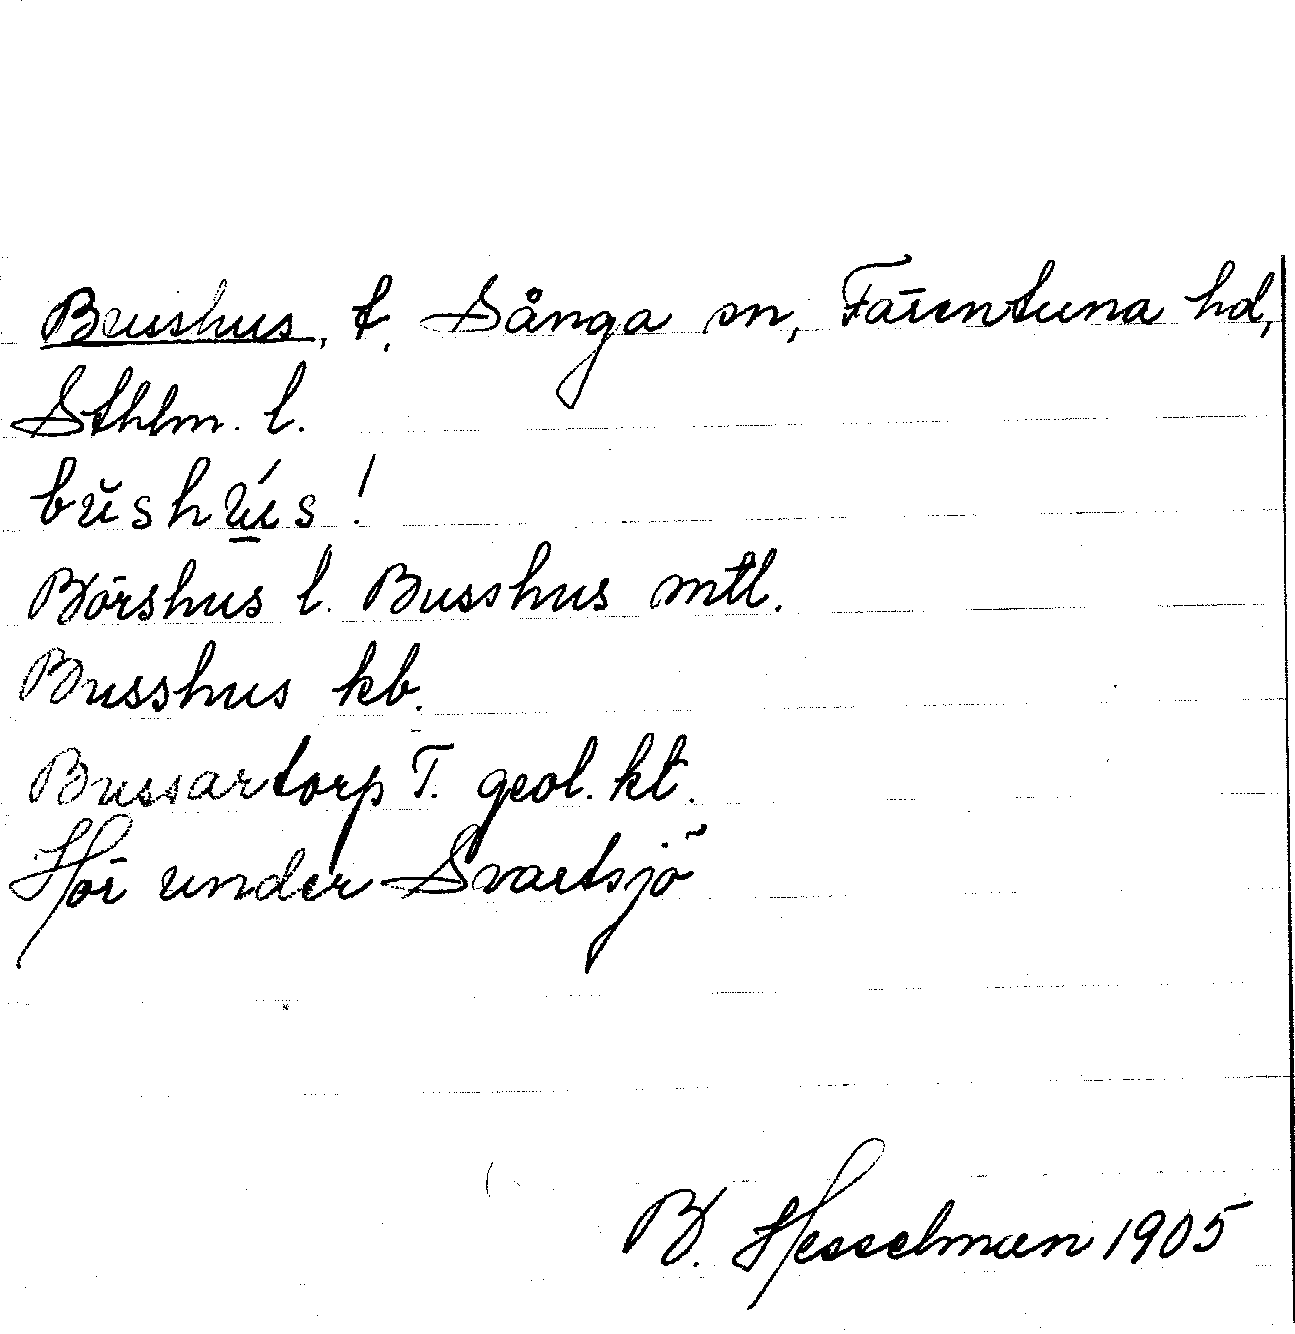 Busshus, t. Sånga sn, Färentuna hd,
Sthlm. l.
bŭshú̲s!
Börshus l. Busshus mtl.
Busshus kb.
Bussartorp T. geol. kt.
Hör under Svartsjö
B. Hesselman 1905